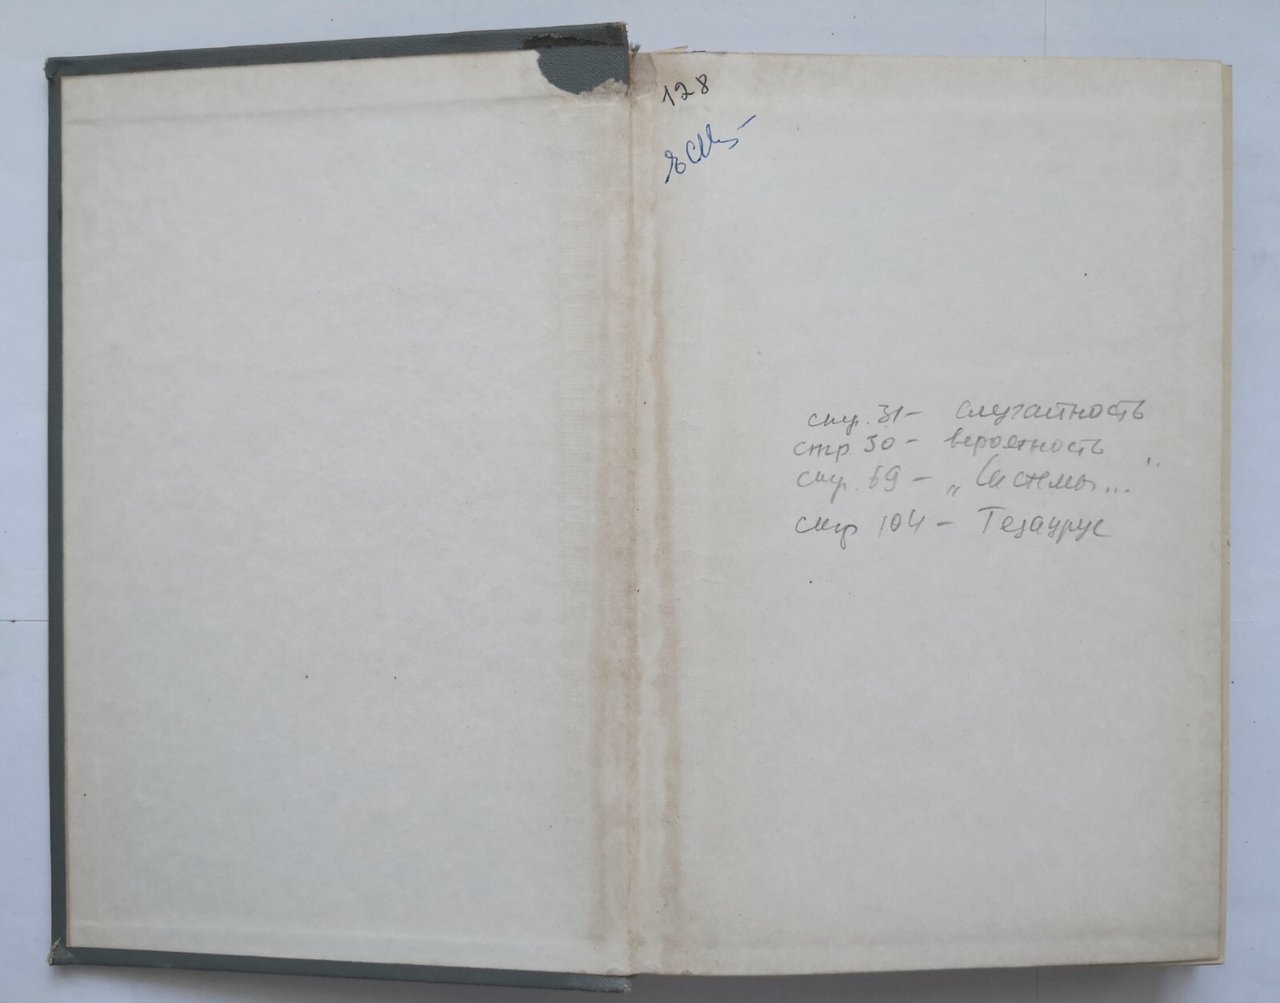 128
стр. 31 - случайность
стр 30 - вероятность
стр. 69 - „Системы..."
стр 104 - Тезаурус